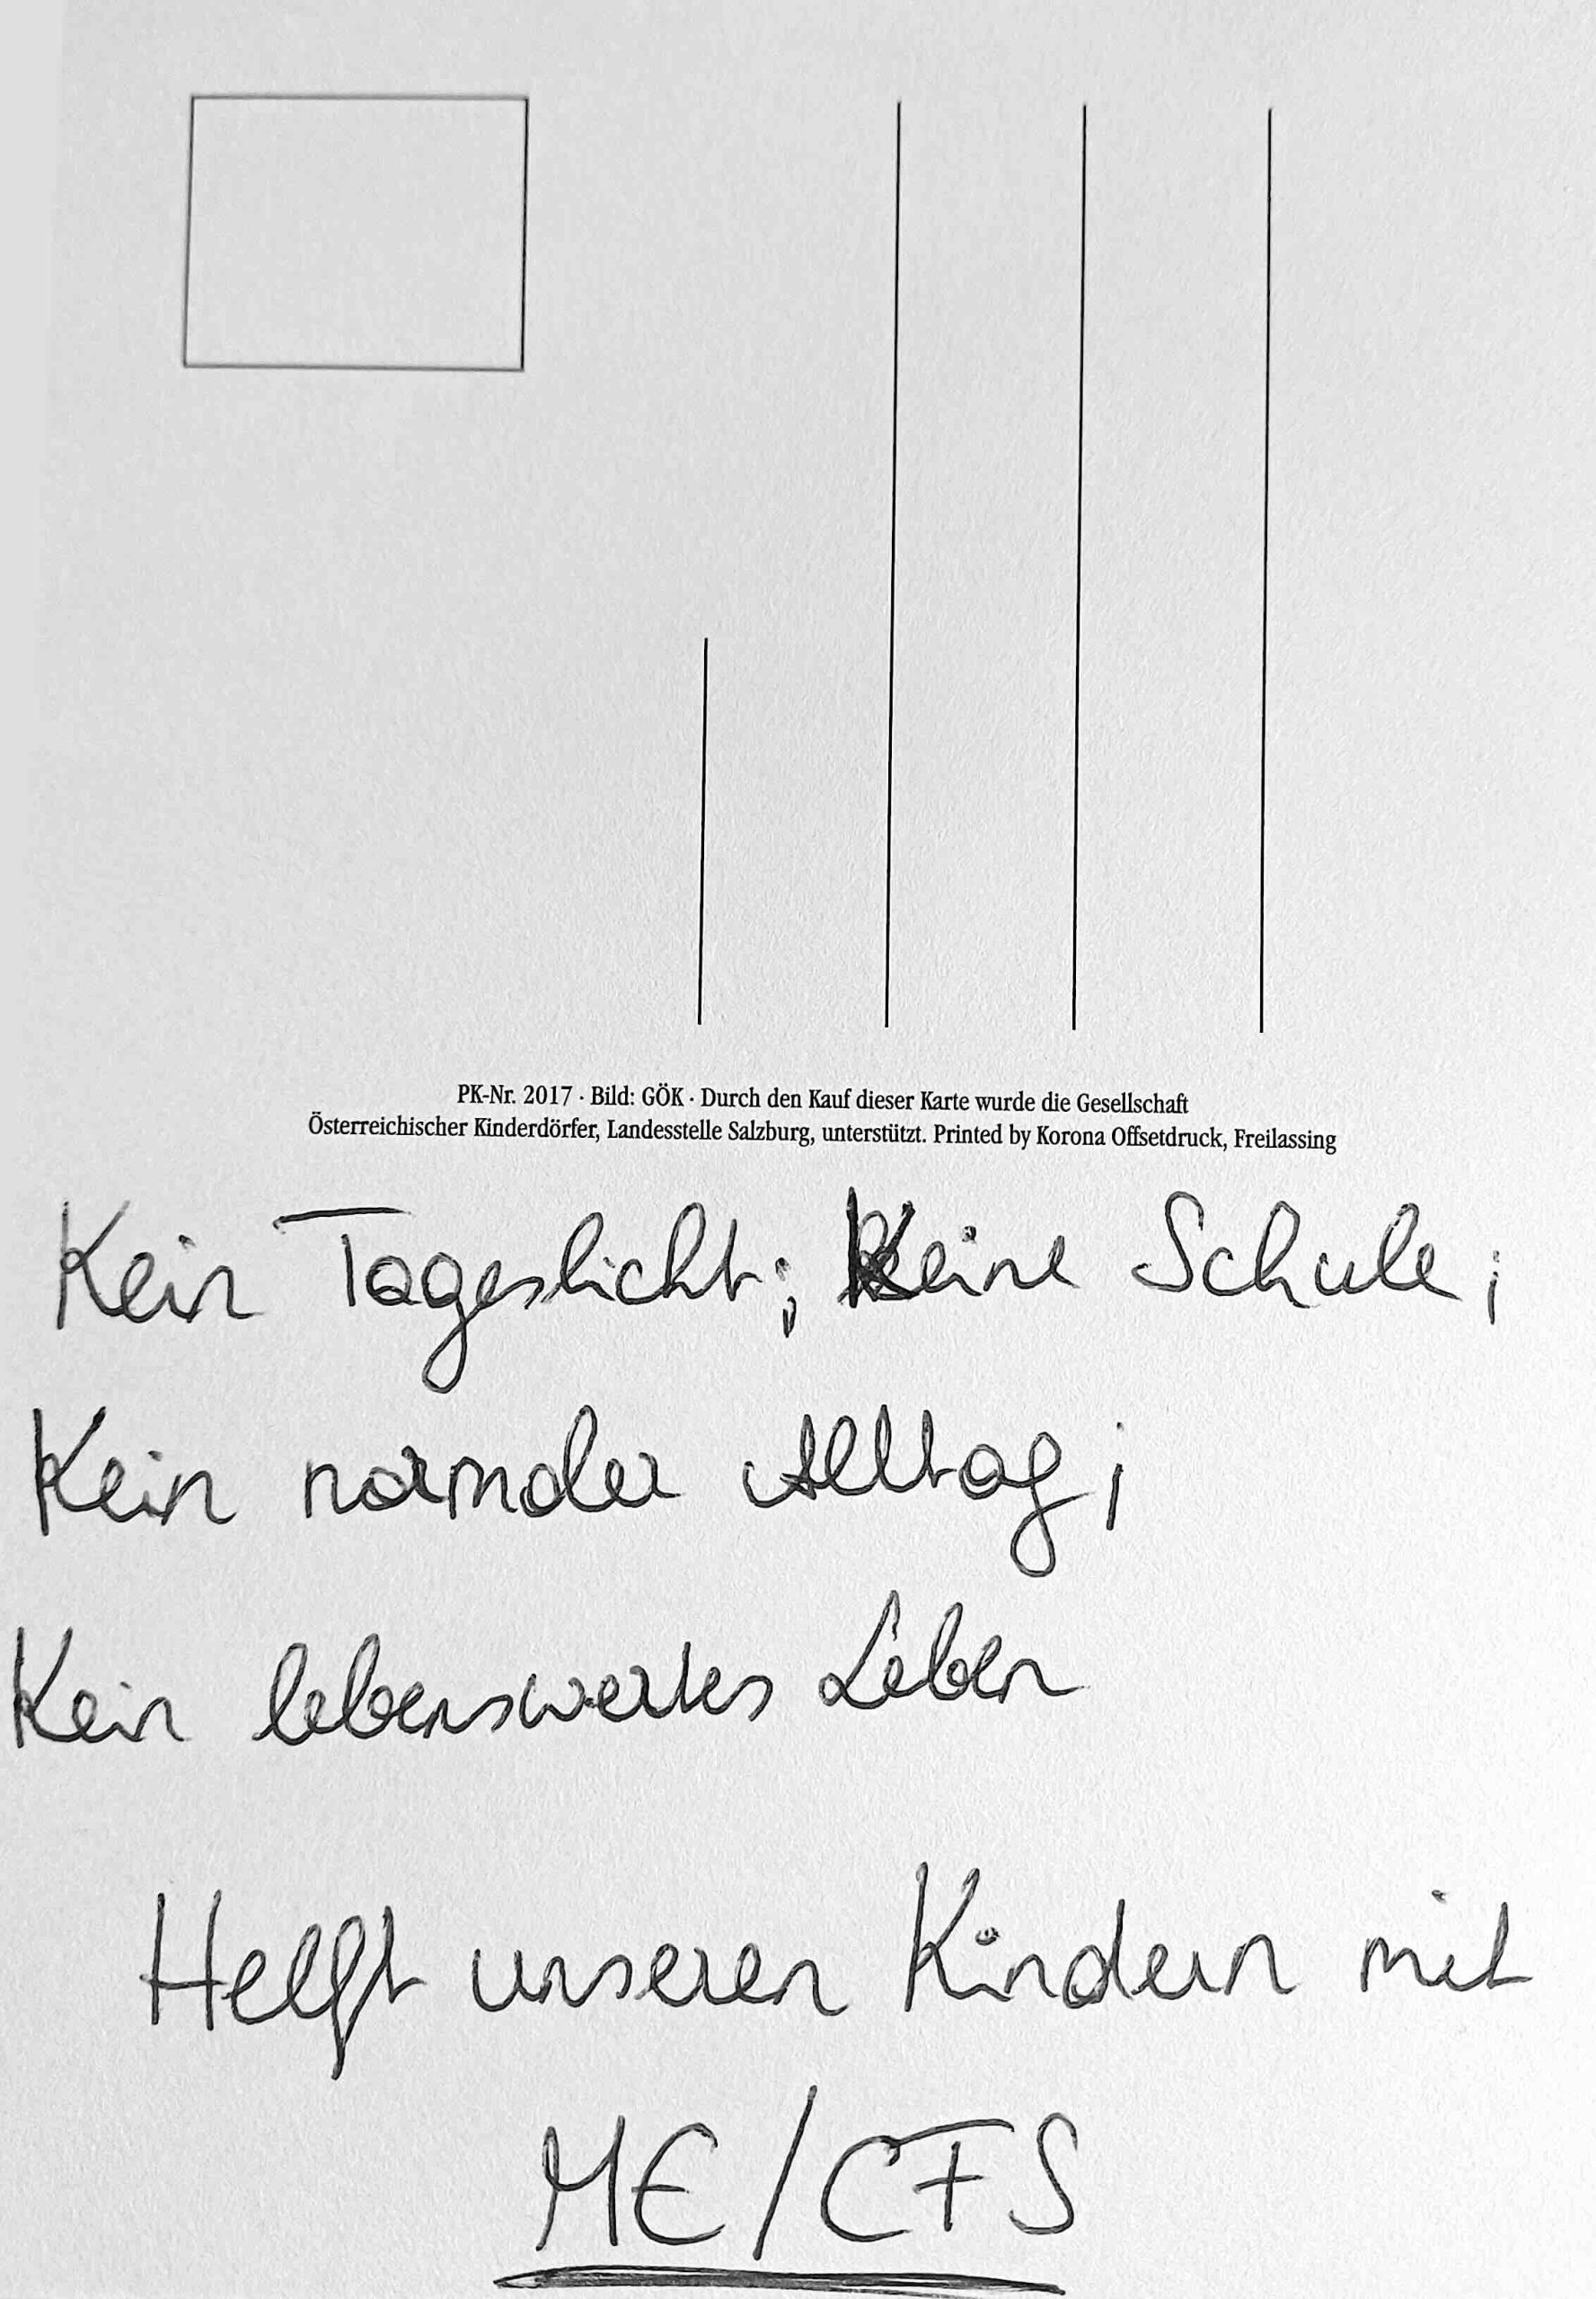 PK-Nr. 2017 · Bild: GÖK · Durch den Kauf dieser Karte wurde die Gesellschaft
Österreichischer Kinderdörfer, Landesstelle Salzburg, unterstützt. Printed by Korona Offsetdruck, Freilassing
Kein Tageslicht; Keine Schule;
Kein normaler Alltag;
Kein lebenswertes Leben
Helft unseren Kindern mit
ME/CFS